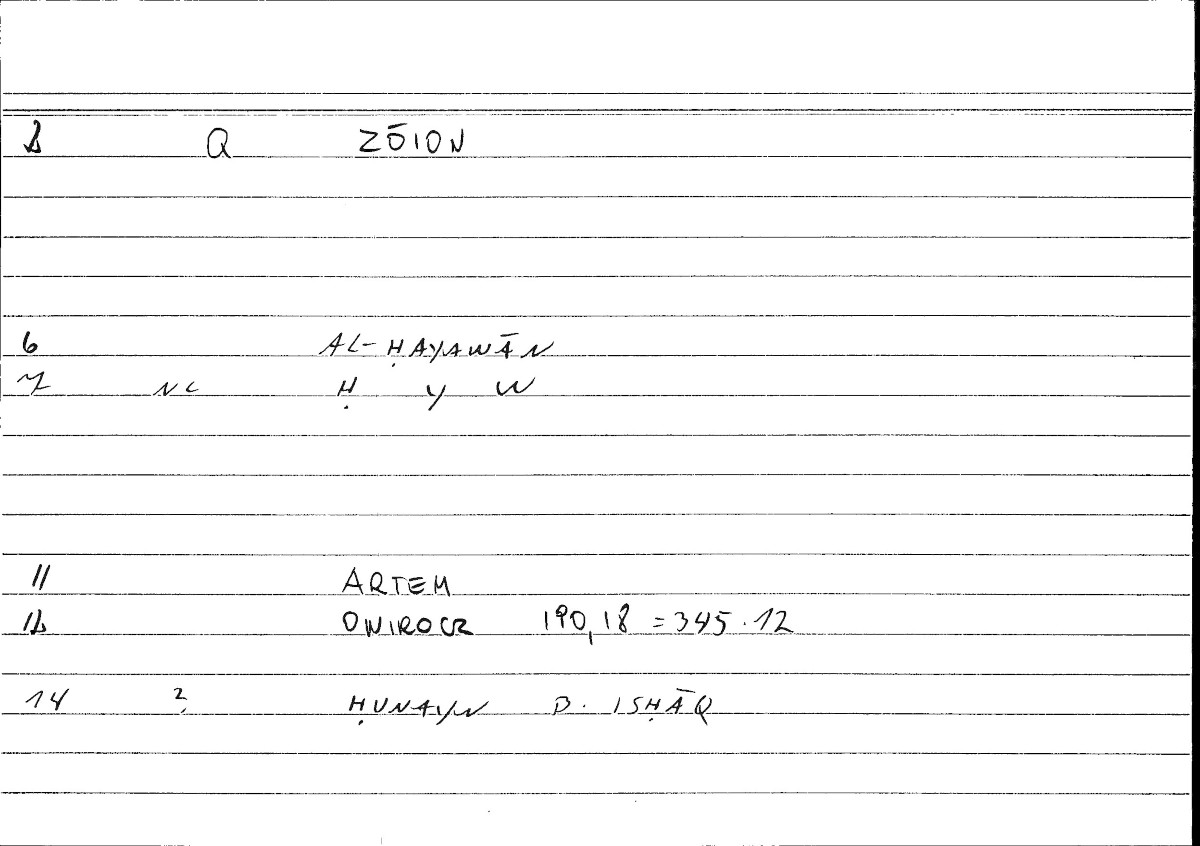 2 Q ZŌION
6 AL-ḤAYAWĀN
7 NC Ḥ Y W
11 ARTEM
12 ONIROCR 190,18 = 345.12
14 ? ḤUNAYN B. ISḤĀQ